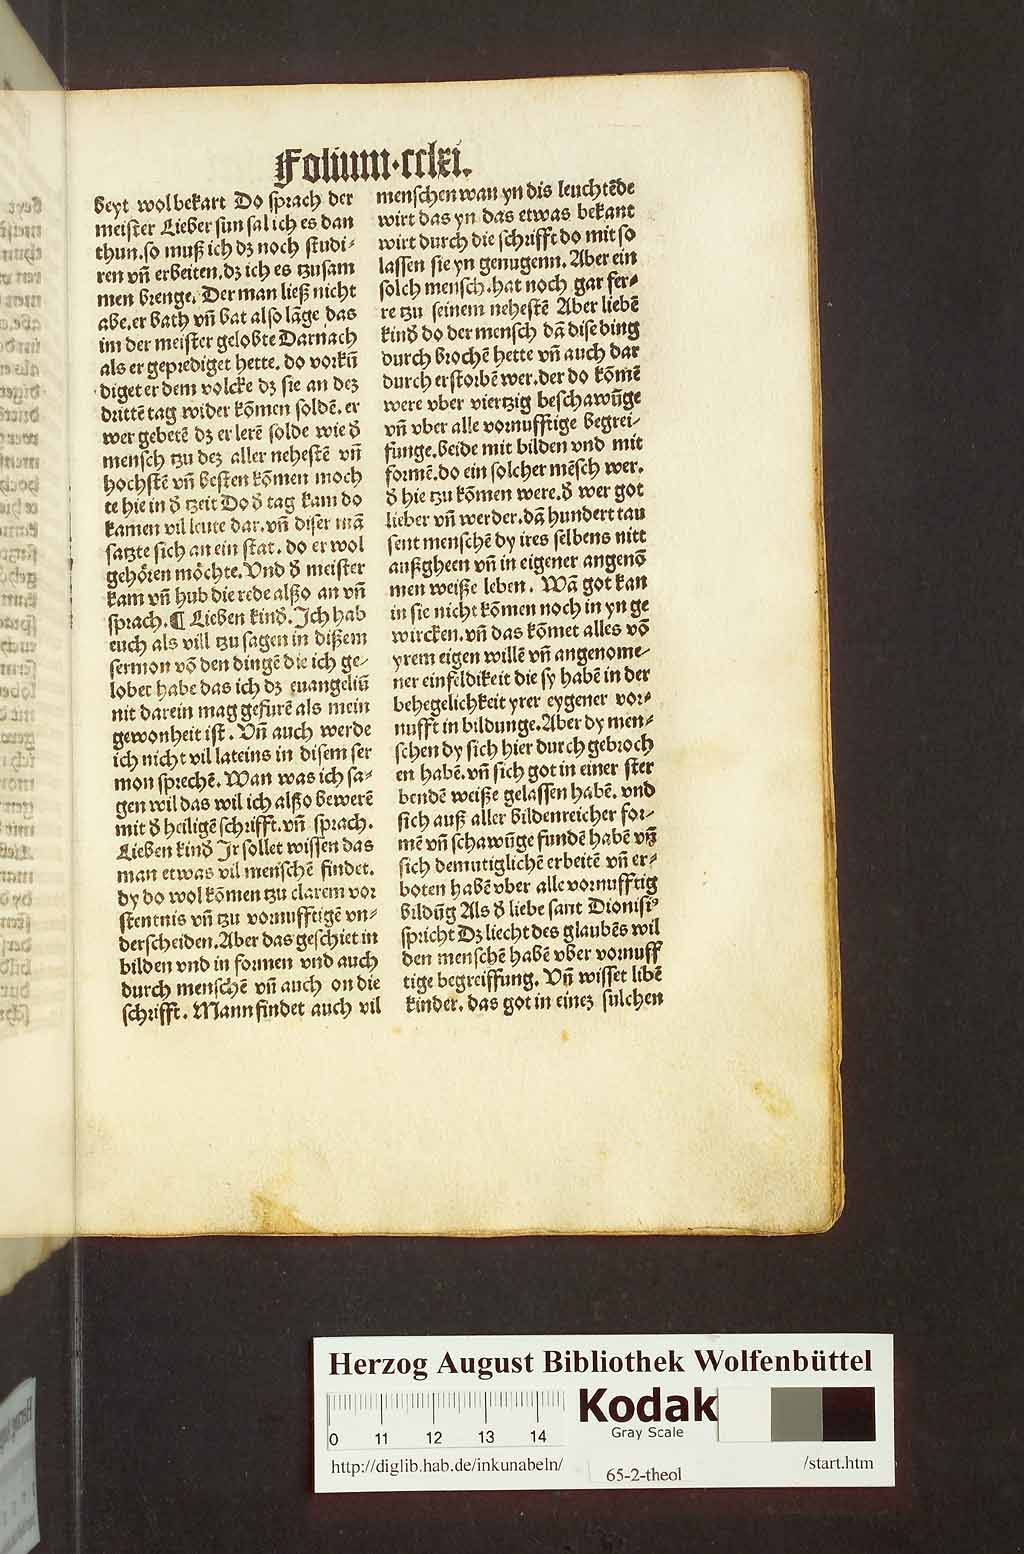 Folium·cclxi.
heyt wol bekart Do sprach der
meister Lieber sun sal ich es dan
thun.so muß ich dz noch studi⸗
ren vn̄ erbeiten.dz ich es tzusam
men brenge. Der man ließ nicht
abe.er bath vn̄ bat also lāge das
im der meister gelobte Darnach
als er geprediget hette. do vorkū
diget er dem volcke dz sie an dez
drittē tag wider kōmen soldē. er
wer gebetē dz er lerē solde wie d̄
mensch tzu dez aller nehestē vn̄
hochstē vn̄ besten kōmen moch
te hie in d̄ tzeit Do d̄ tag kam do
kamen vil leute dar.vn̄ diser mā
satzte sich an ein stat. do er wol
gehören möchte. Vnd d̄ meister
kam vn̄ hub die rede alßo an vn̄
sprach.¶ Lieben kind. Ich hab
euch als vill tzu sagen in dißem
sermon vō den dingē die ich ge⸗
lobet habe das ich dz euangeliū
nit darein mag gefurē als mein
gewonheit ist. Vn̄ auch werde
ich nicht vil lateins in disem ser
mon sprechē. Wan was ich sa⸗
gen wil das wil ich alßo bewerē
mit d̄ heiligē schrifft.vn̄ sprach.
Lieben kind Ir sollet wissen das
man etwas vil menschē findet.
dy do wol kōmen tzu clarem vor
stentnis vn̄ tzu vornufftigē vn⸗
derscheiden. Aber das geschiet in
bilden vnd in formen vnd auch
durch menschē vn̄ auch on die
schrifft. Mann findet auch vil
menschen wan yn dis leuchtēde
wirt das yn das etwas bekant
wirt durch die schrifft do mit so
lassen sie yn genugenn. Aber ein
solch mensch.hat noch gar fer⸗
re tzu seinem nehestē Aber liebē
kind do der mensch dā dise ding
durch brochē hette vn̄ auch dar
durch erstorbē wer.der do kōmē
were vber viertzig beschawūge
vn̄ vber alle vornufftige begrei⸗
funge.beide mit bilden vnd mit
formē.do ein solcher mēsch wer.
d̄ hie tzu kōmen were.d̄ wer got
lieber vn̄ werder.dā hundert tau
sent menschē dy ires selbens nitt
außgheen vn̄ in eigener angenō
men weiße leben. Wā got kan
in sie nicht kōmen noch in yn ge
wircken.vn̄ das kōmet alles vō
yrem eigen willē vn̄ angenome⸗
ner einfeldikeit die sy habē in der
behegelichkeit yrer eygener vor⸗
nufft in bildunge. Aber dy men⸗
schen dy sich hier durch gebroch
en habē.vn̄ sich got in einer ster
bendē weiße gelassen habē. vnd
sich auß aller bildenreicher for⸗
mē vn̄ schawūge fundē habē vn̄
sich demutiglichē erbeitē vn̄ er⸗
boten habē vber alle vornufftig
bildūg Als d̄ liebe sant Dionisiꝰ
spricht Dz liecht des glaubēs wil
den menschē habē vber vornuff
tige begreiffung. Vn̄ wisset libē
kinder. das got in einez sulchen
Herzog August Bibliothek Wolfenbüttel
0 11 12 13 14
Kodak
Gray Scale
http://diglib.hab.de/inkunabeln/
65-2-theol
/start.htm